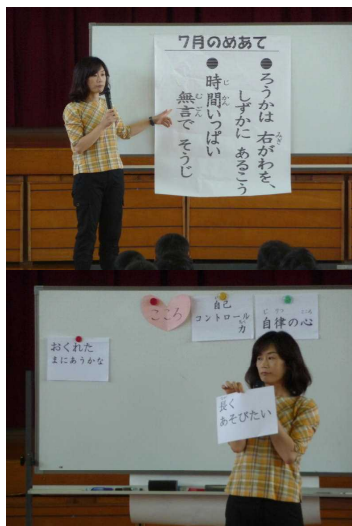 7月のめあて
●ろうかは 右がわを、
しずかに あるこう
●時間いっぱい
無言で そうじ
こころ
自己
コントロール
力
自律の心
おくれた
まにあうかな
長く
あそびたい